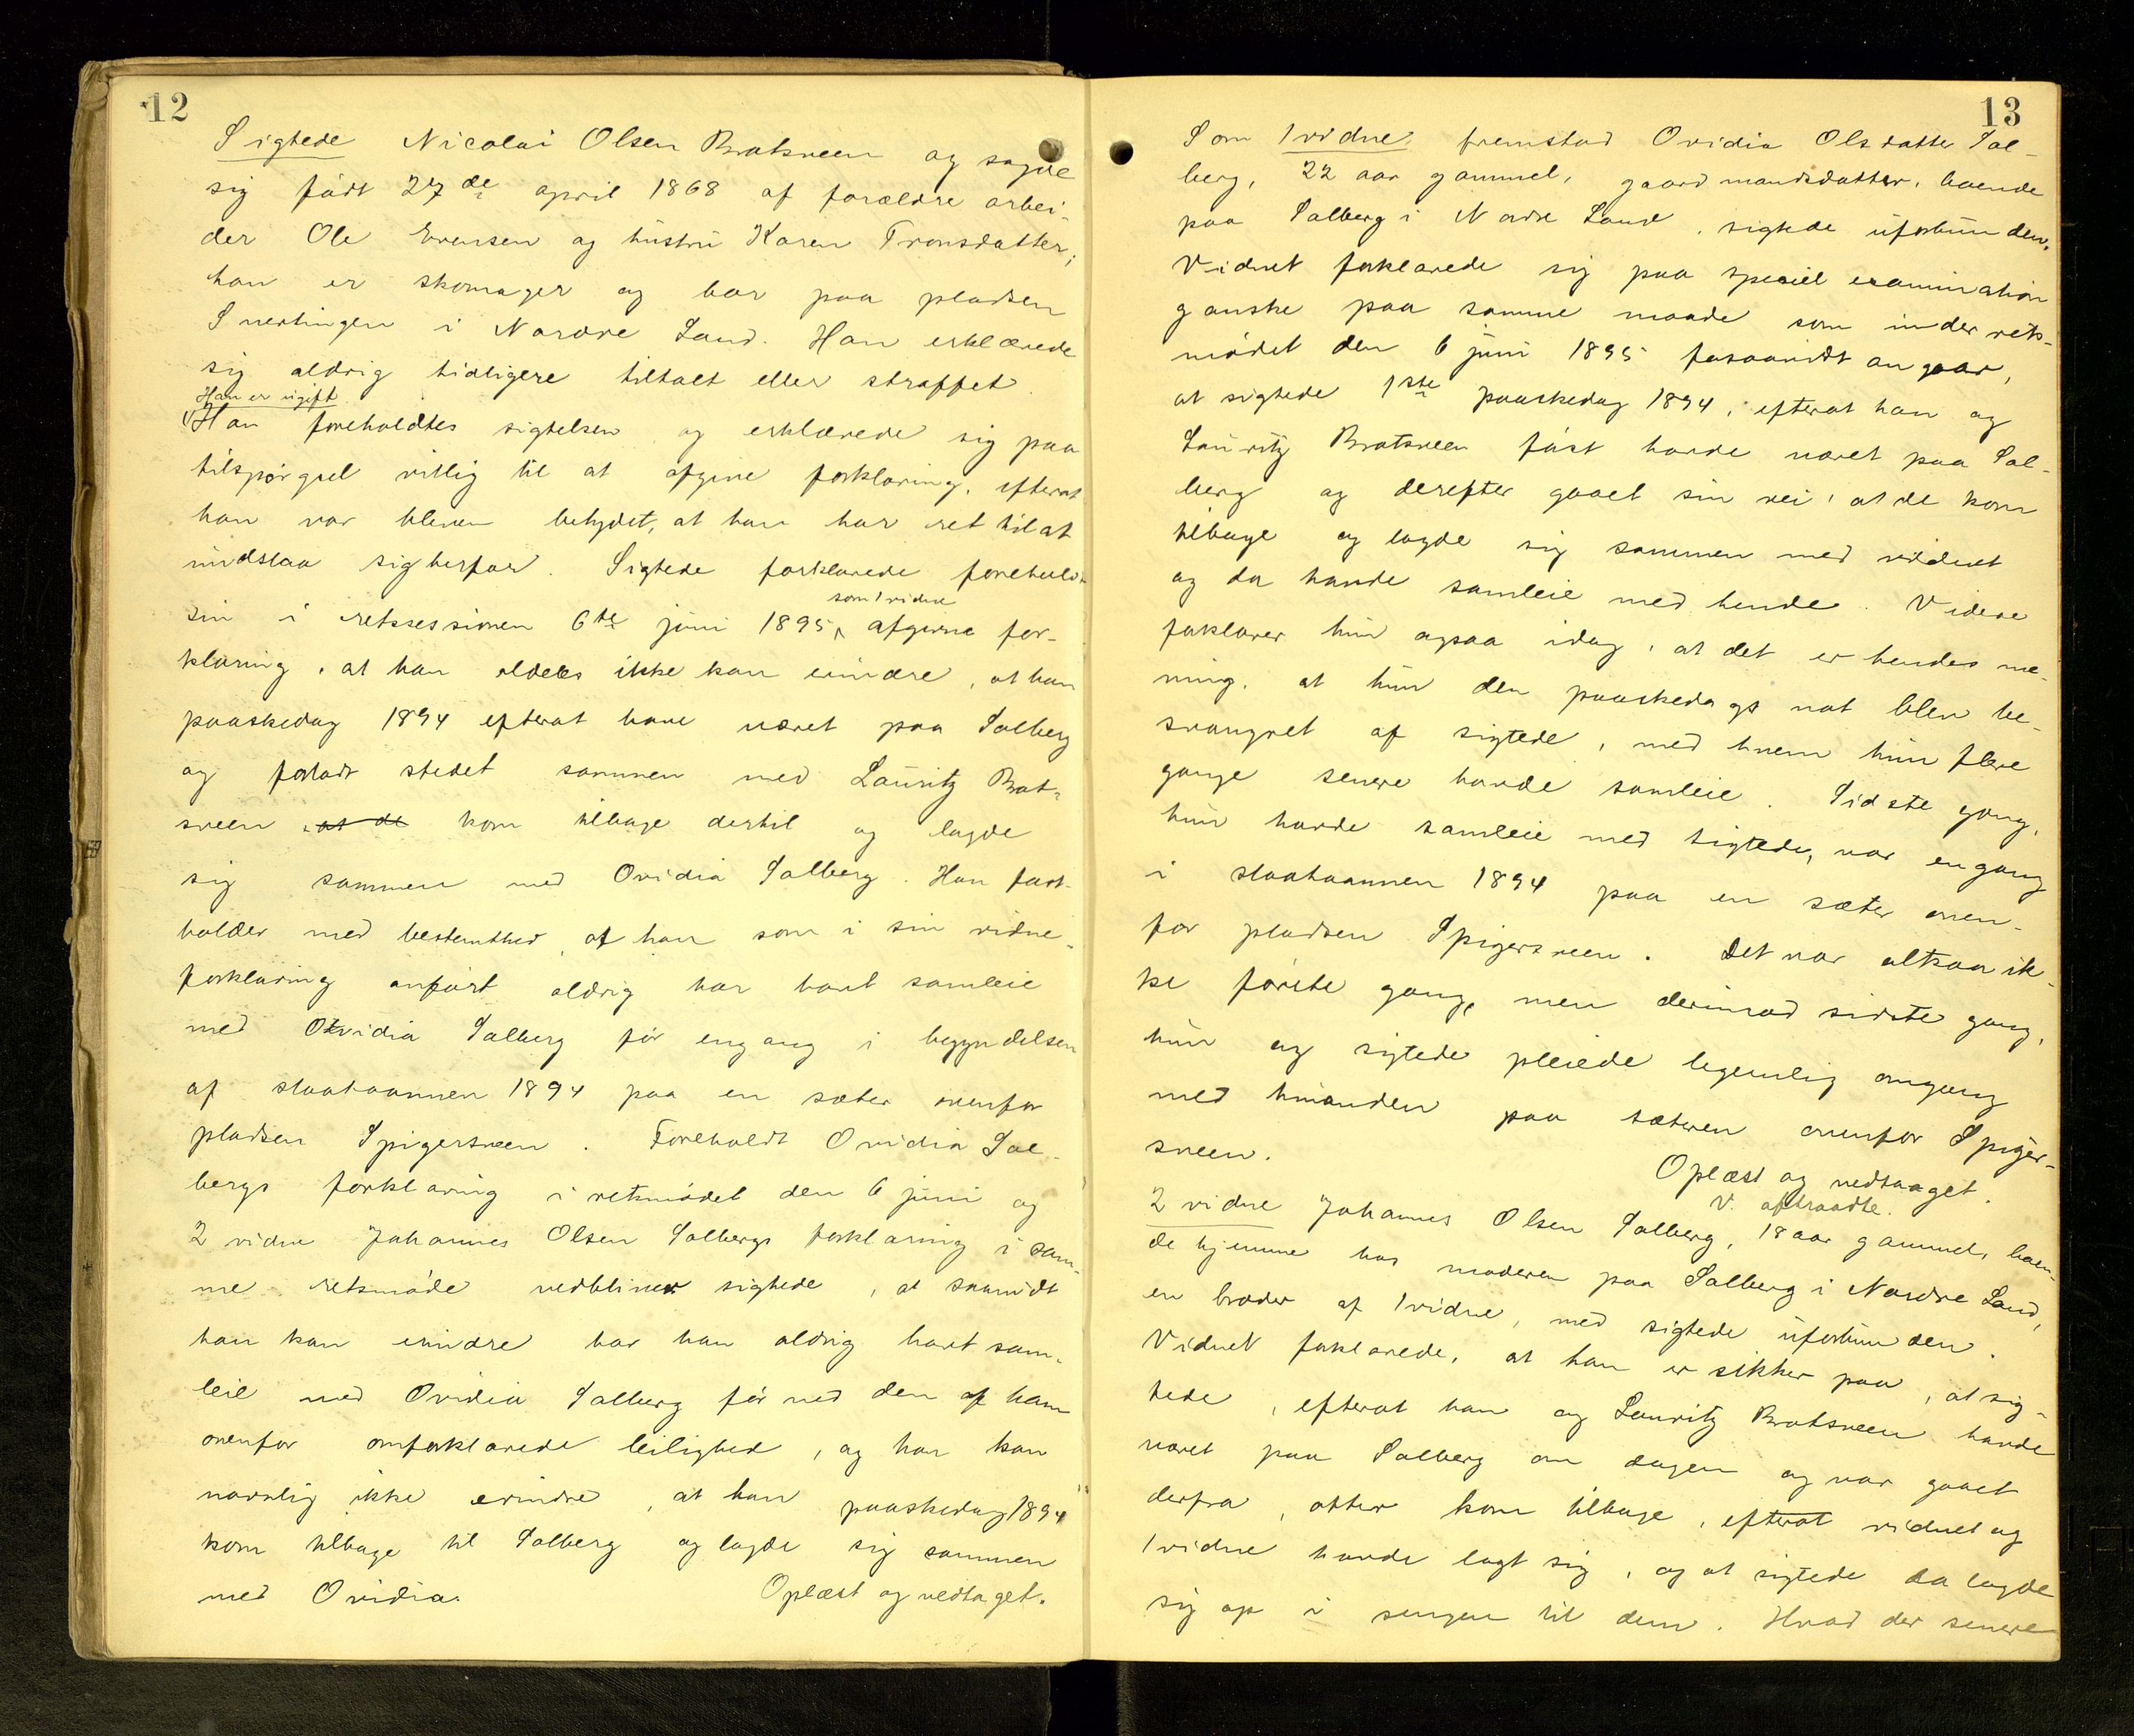 12
Sigtede Nicolai Olsen Bratsveen og sagde
sig født 27de april 1868 af forældre arbei-
der Ole Evensen og hustru Karen Tronsdatter;
han er skomager og bor paa pladsen
Snertingen i Nordre Land. Han erklærede
sig aldrig tidligere tiltalt eller straffet.
Han er ugift
Han foreholdtes sigtelsen og erklærede sig paa
tilspørgsel villig til at afgive forklaring, efterat
han var bleven betydet, at han har ret til at
undslaa sig herfor. Sigtede forklarede foreholdt
som 1 vidne
sin i retssessionen 6te juni 1895 afgivne for-
klaring, at han aldeles ikke kan erindre, at han
paaskedag 1894 efterat have været paa Solberg
og forladt stedet sammen med Lauritz Brat-
sveen at de kom tilbage dertil og lagde
sig sammen med Ovidia Solberg. Han fast-
holder med bestemthed, at han som i sin vidne-
forklaring anført aldrig har havt samleie
med Ovidia Solberg før engang i begyndelsen
af slaataannen 1894 paa en sæter ovenfor
pladsen Spigersveen. Foreholdt Ovidia Sol-
bergs forklaring i retsmødet den 6 juni og
2 vidne Johannes Olsen Solbergs forklaring i sam-
me retsmøde vedbliver sigtede, at saavidt
han kan erindre har han aldrig havt sam-
leie med Ovidia Solberg før ved den af ham
ovenfor omforklarede leilighed, og han kan
navnlig ikke erindre, at han paaskedag 1894
kom tilbage til Solberg og lagde sig sammen
med Ovidia. Oplæst og vedtaget.
13
Som 1 vidne fremstod Ovidia Olsdatter Sol-
berg, 22 aar gammel, gaardmandsdatter, boende
paa Solberg i Nordre Land, sigtede uforbunden.
Vidnet forklarede sig paa speciel examination
ganske paa samme maade som under rets-
mødet den 6 juni 1895 forsaavidt angaar,
at sigtede 1ste paaskedag 1894, efterat han og
Lauritz Bratsveen først havde været paa Sol-
berg og derefter gaaet sin vei, at de kom
tilbage og lagde sig sammen med vidnet
og da havde samleie med hende. Videre
forklarer hun ogsaa idag, at det er hendes me-
ning, at hun den paaskedags nat blev be-
svangret af sigtede, med hvem hun flere
gange senere havde samleie. Sidste gang,
hun havde samleie med sigtede, var engang
i slaataannen 1894 paa en sæter oven-
for pladsen Spigersveen. Det var altsaa ik-
ke første gang, men derimod sidste gang,
hun og sigtede pleiede legemlig omgang
med hinanden paa sæteren ovenfor Spiger-
sveen.
Oplæst og vedtaget.
V. aftraadte.
2 vidne Johannes Olsen Solberg, 18 aar gammel, boen-
de hjemme hos moderen paa Solberg i Nordre Land,
en broder af 1 vidne, med sigtede uforbunden.
Vidnet forklarede, at han er sikker paa, at sig-
tede, efterat han og Lauritz Bratsveen havde
været paa Solberg om dagen og var gaaet
derfra, atter kom tilbage, efterat vidnet og
1 vidne havde lagt sig, og at sigtede da lagde
sig op i sengen til dem. Hvad der senere